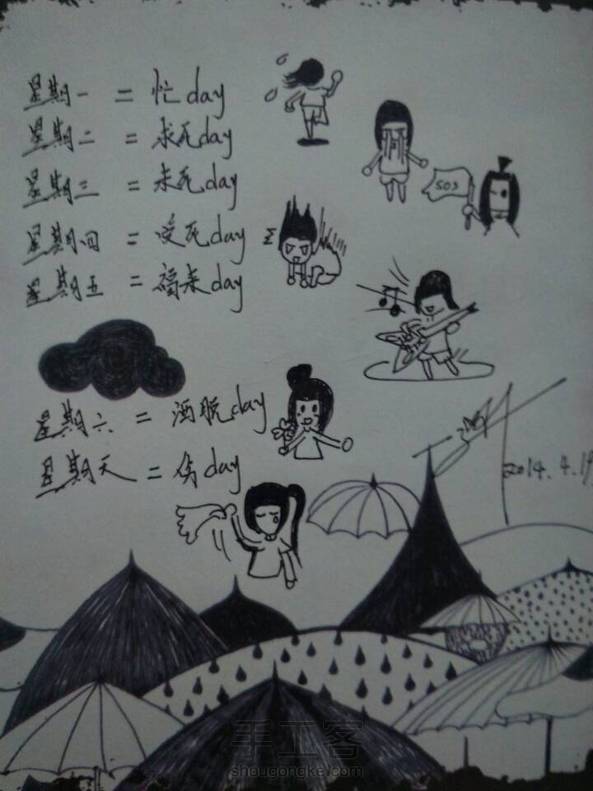 星期一 = 忙day
星期二 = 求死day
SOS
星期三 = 未死day
星期四 = 受死day
星期五 = 福来day
星期六 = 洒脱day
星期天 = 伤day
2014.4.19
手工客
shougongke.com